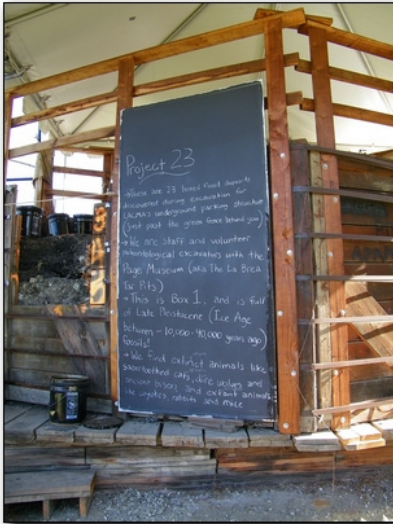 Project 23
→ These are 23 boxed fossil deposits
discovered during excavation for
LACMA's underground parking structure
(just past the green fence behind you)
→ We are staff and volunteer
paleontological excavators with the
Page Museum (aka The La Brea
Tar Pits)
→ This is Box 1, and is full
of Late Pleistocene (Ice Age
between ~10,000-40,000 years ago)
fossils!
→ We find extinct animals like
sabertoothed cats, dire wolves and
ancient bison and extant animals
like coyotes, rabbits and mice